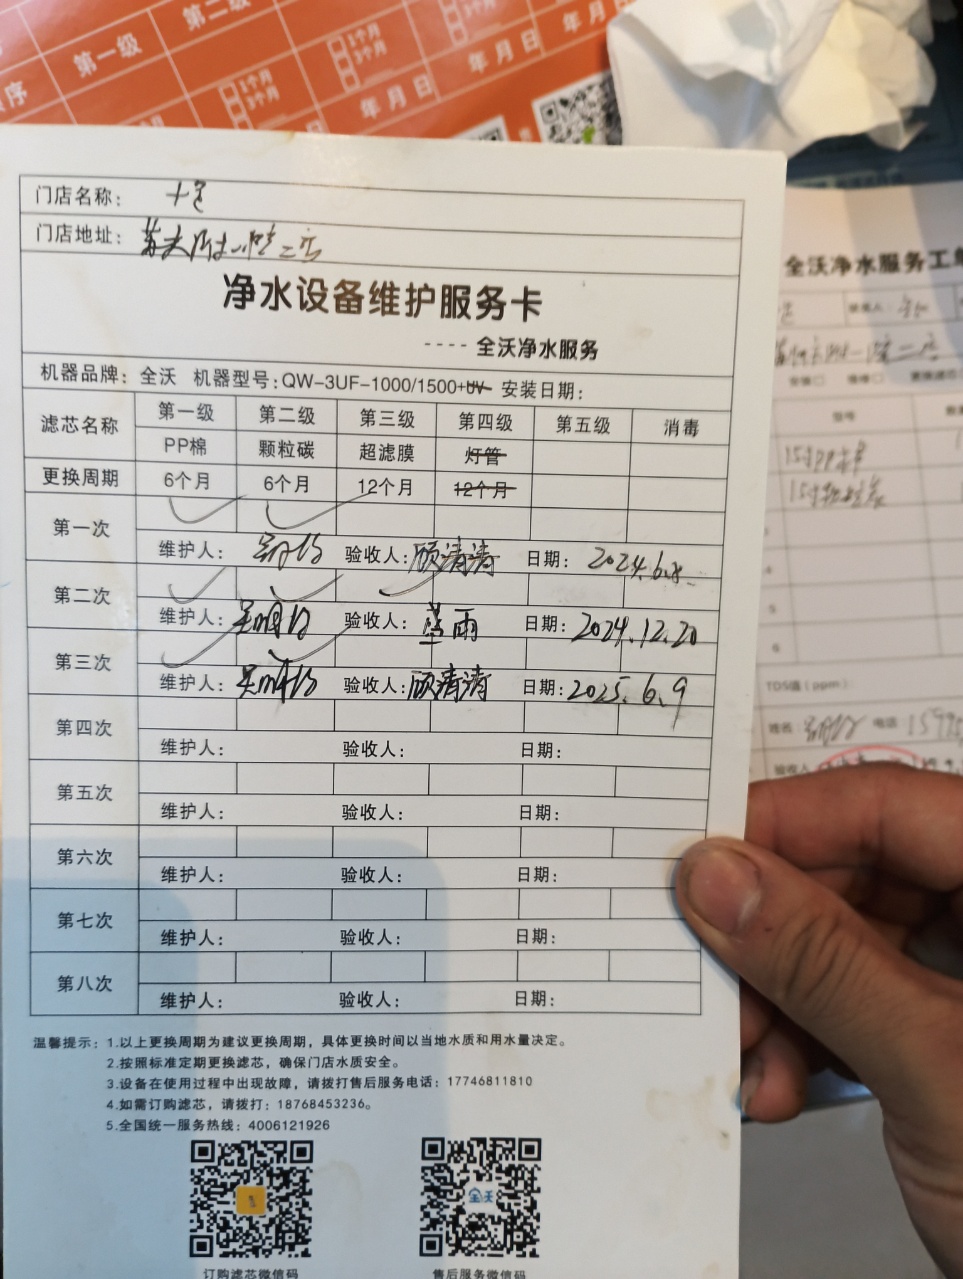 第一级
第二级
1个月
3个月
年 月 日
年 月 日
年 月 日
门店名称：
门店地址：
净水设备维护服务卡
---- 全沃净水服务
机器品牌：全沃 机器型号：QW-3UF-1000/1500+UV 安装日期：
滤芯名称 第一级 第二级 第三级 第四级 第五级 消毒
PP棉 颗粒碳 超滤膜 灯管
更换周期 6个月 6个月 12个月 12个月
第一次
维护人： 验收人：顾清清 日期：2024.6.8
第二次
维护人： 验收人： 日期：2024.12.20
第三次
维护人： 验收人：顾清清 日期：2025.6.9
第四次
维护人： 验收人： 日期：
第五次
维护人： 验收人： 日期：
第六次
维护人： 验收人： 日期：
第七次
维护人： 验收人： 日期：
第八次
维护人： 验收人： 日期：
温馨提示：1.以上更换周期为建议更换周期，具体更换时间以当地水质和用水量决定。
2.按照标准定期更换滤芯，确保门店水质安全。
3.设备在使用过程中出现故障，请拨打售后服务电话：17746811810
4.如需订购滤芯，请拨打：18768453236。
5.全国统一服务热线：4006121926
全沃
订购滤芯微信码
售后服务微信码
全沃净水服务工单
型号
TDS值（ppm）
姓名
电话
验收人